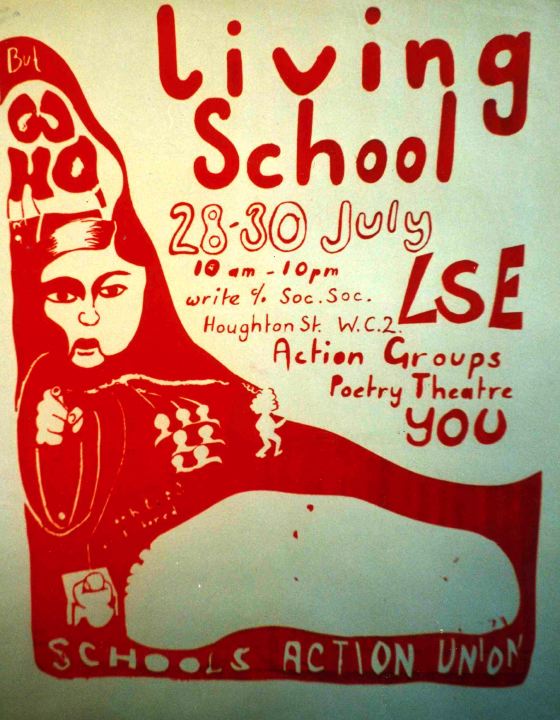 But
WHO
Living
School
28-30 July
10 am - 10 pm
write c/o Soc. Soc.
Houghton St. W.C.2.
LSE
Action Groups
Poetry Theatre
YOU
SCHOOLS ACTION UNION